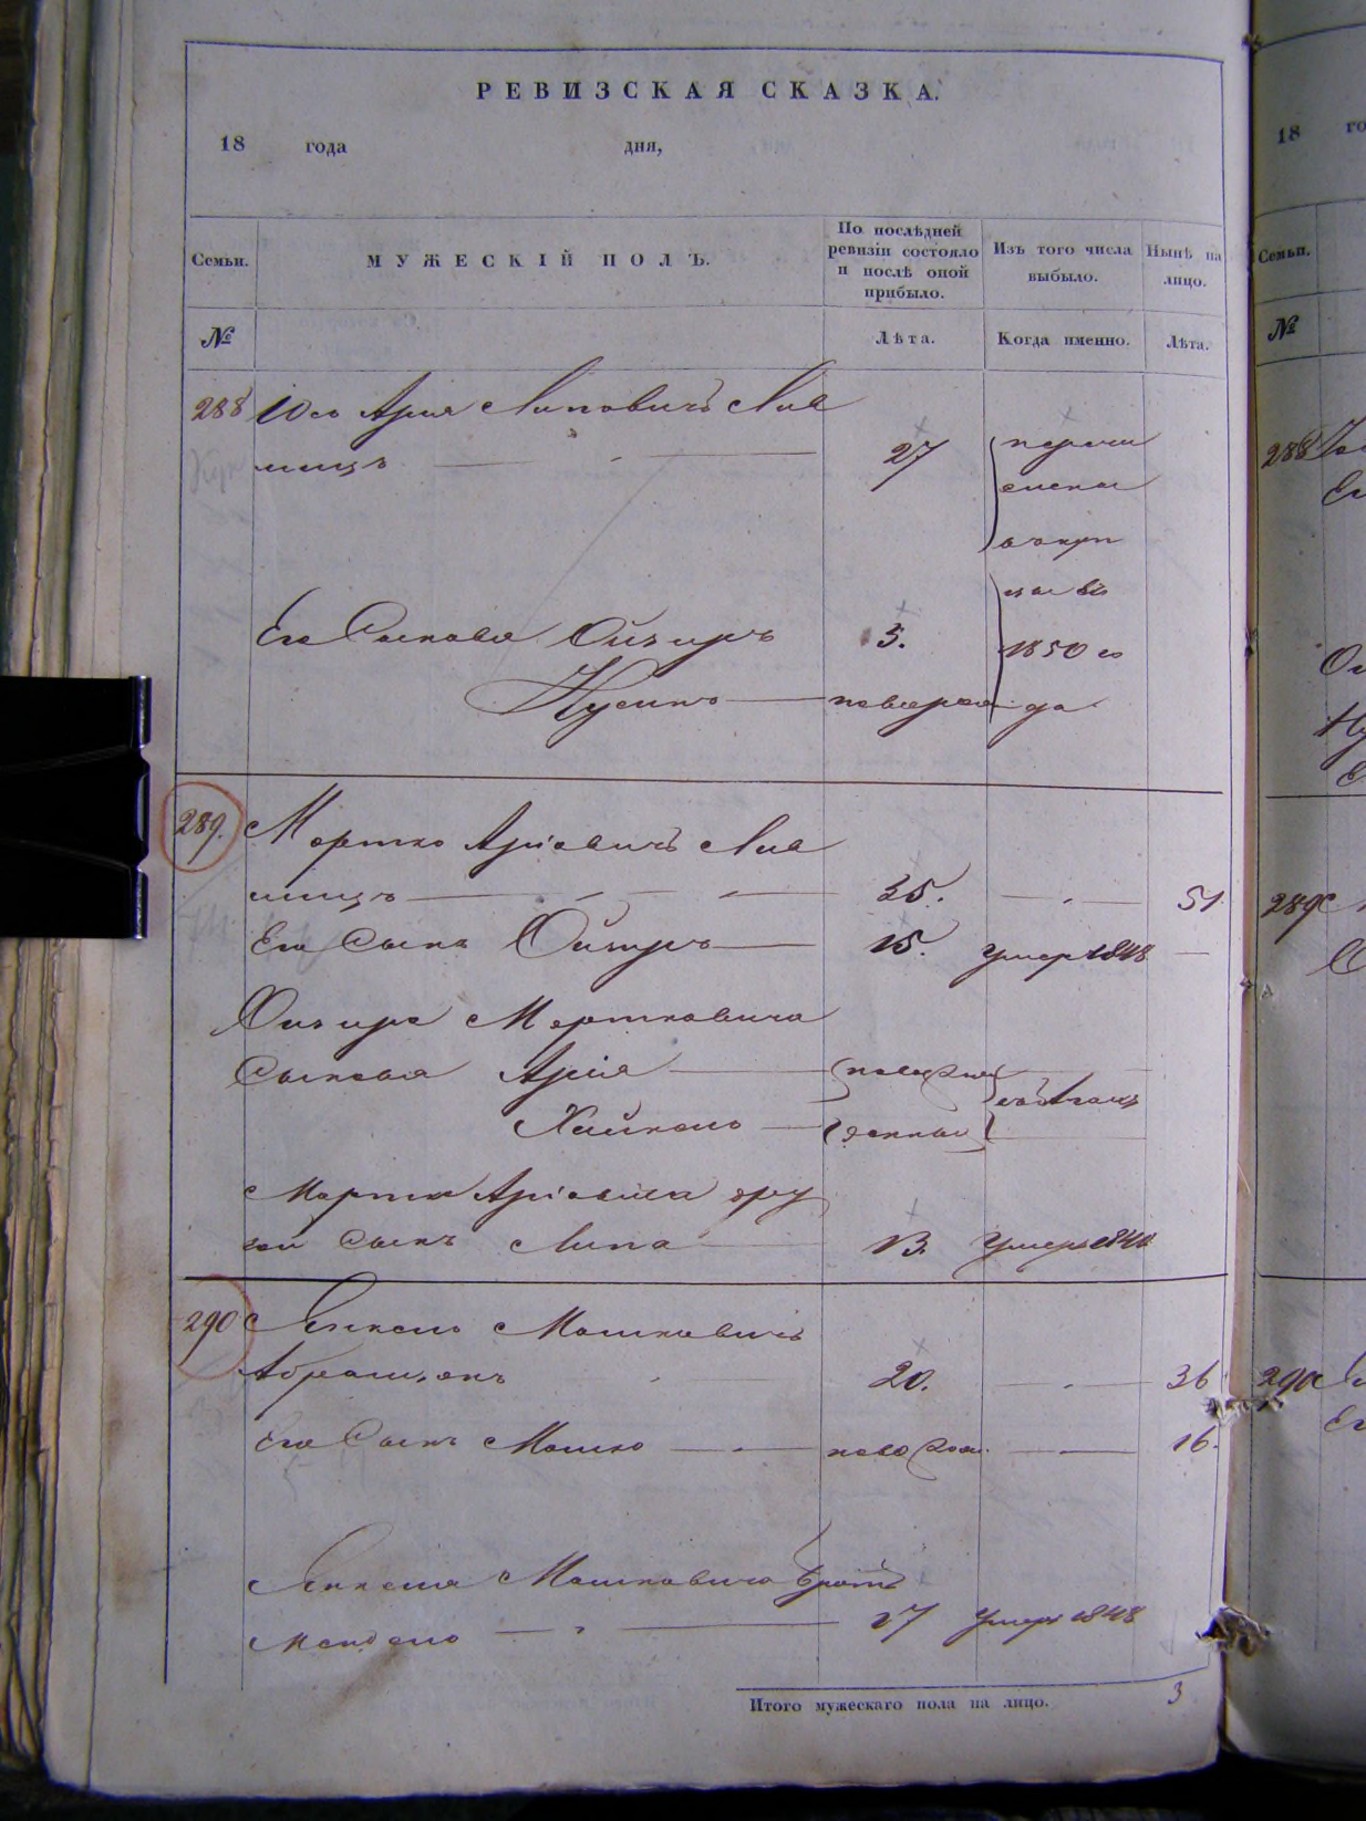 РЕВИЗСКАЯ СКАЗКА.
18 года дня,
Семьи. МУЖЕСКІЙ ПОЛЪ. По послѣдней ревизіи состояло и послѣ оной прибыло. Изъ того числа выбыло. Нынѣ на лицо.
№ Лѣта. Когда именно. Лѣта.
288 Юсь Арія Липовичъ Лив
шицъ 27 перечи
слены
Его Сыновья Ойзиръ 5. 1850 го
Нусинъ новорож да
289. Мортко Аріовичъ Лив
шицъ 35. 51
Его Сынъ Ойзиръ 15. умер 1848
Ойзира Мортковича
Сыновья Арія новорож
Хайкель денные
Мортка Аріовича дру
гой Сынъ Липа 13. умеръ 1840
290 Янкель Мошковичъ
20. 36
Его Сынъ Мошко новорож. 16.
Янкеля Мошковича братъ
Мендель 17 умеръ 1848
Итого мужескаго пола на лицо. 3
18 го
Семьи.
№
288
Ег
289
290
Ег